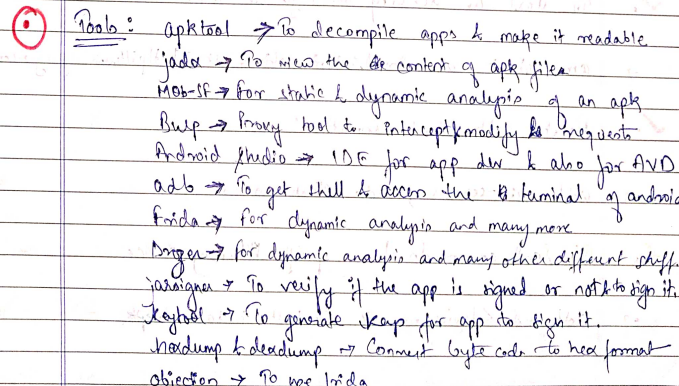 Tools : apktool → To decompile apps & make it readable
jadx → To view the content of apk files
Mob-SF → for static & dynamic analysis of an apk
Burp → Proxy tool to intercept & modify requests
Android studio → IDE for app dev & also for AVD
adb → To get shell & access the terminal of android
Frida → for dynamic analysis and many more
→ for dynamic analysis and many other different stuff.
jarsigner → To verify if the app is signed or not & to sign it.
Keytool → To generate keys for app to sign it.
hexdump & → Convert byte code to hex format
objection → To use frida